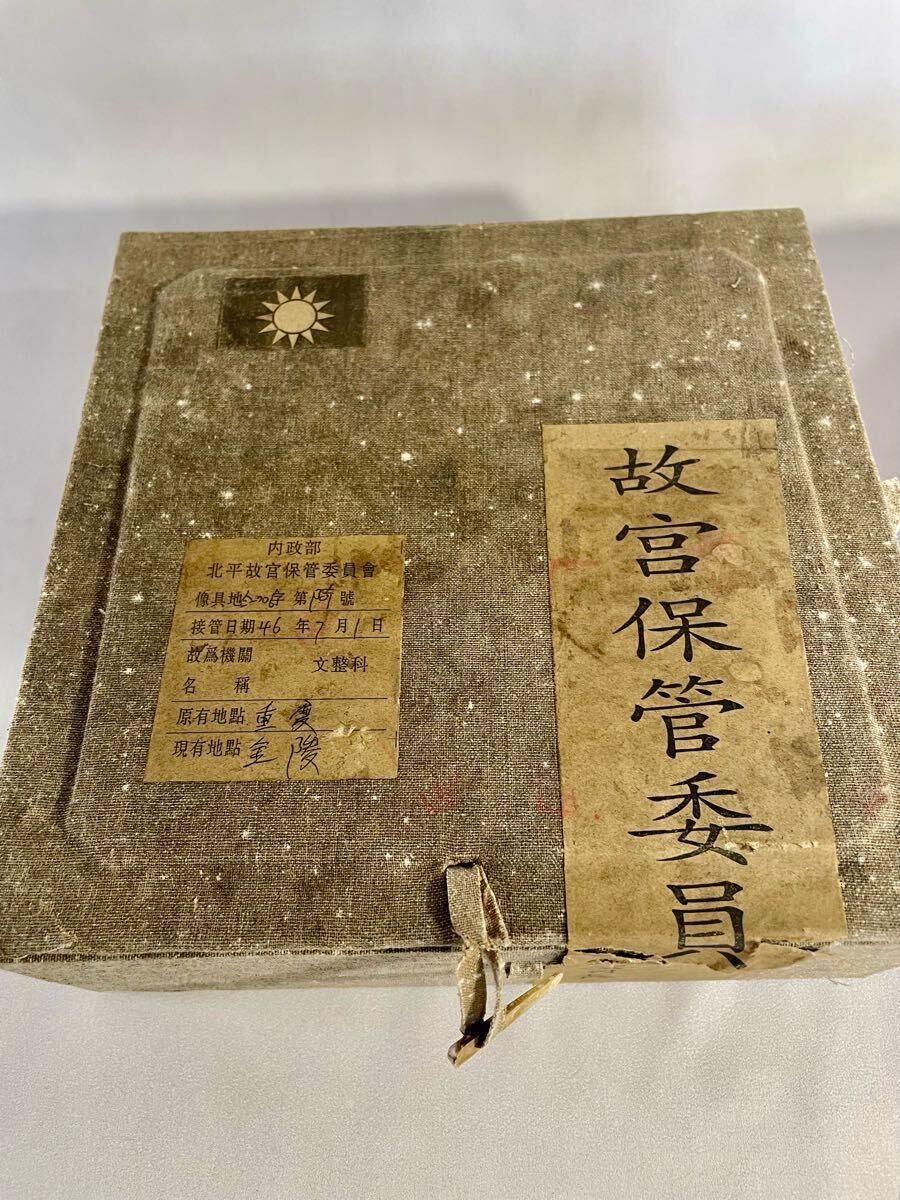 故宮保管委員
内政部
北平故宮保管委員會
像具地 字第 號
接管日期46年7月1日
故爲機關
名稱
文整科
原有地點重慶
現有地點金陵